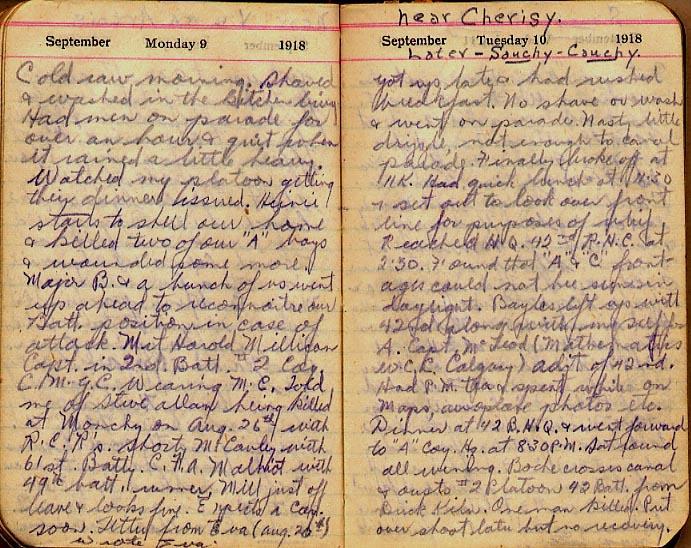 September Monday 9 1918
Cold raw morning. Shaved
& washed in the bitter
Had men on parade for
over an hour & quit when
it rained a little heavy.
Watched my platoon getting
their dinner issued. Heinie
starts to shell our home
& killed two of our "A" boys
& wounded some more.
Major B. & a bunch of us went
up ahead to reconnaitre our
Batt. position in case of
attack. Met Harold Millican
Capt. in 2nd. Batt. #2 Coy.
C.M.G.C. Wearing M.C. Told
me of Steve Allan being killed
at Monchy on Aug. 26th with
R.C.R's. Shorty McCauley with
61st. Batty. C.F.A. with
49th batt. Mill just off
leave & looks fine. Expects a Cap.
soon. Letter from Eva (Aug. 20th)
Wrote Eva.
near Cherisy.
September Tuesday 10 1918
Later - Sauchy-Cauchy.
Got up late & had rushed
breakfast. No shave or wash
& went on parade. Nasty little
drizzle, not enough to cancel
parade. Finally broke off at
11K. Had quick lunch at 11:30
& set out to look over front
line for purposes of relief.
Reached H.Q. 42nd R.H.C. at
2:30. Found that "A" & "C" front-
ages could not be seen in
daylight. Bayles left up with
42nd along with
A. Capt. McLeod (Mathematics
W.C.C. Calgary) adjt of 42nd.
Had P.M. tea & spent while on
Maps, aeroplane photos etc.
Dinner at 42 B.H.Q. & went forward
to "A" Coy. Hq. at 8:30 P.M. Sat round
all evening. Boche crosses canal
& ousts #2 Platoon 42 Batt. from
Brick Kiln. One man killed. Put
over shoot later but no recovery.